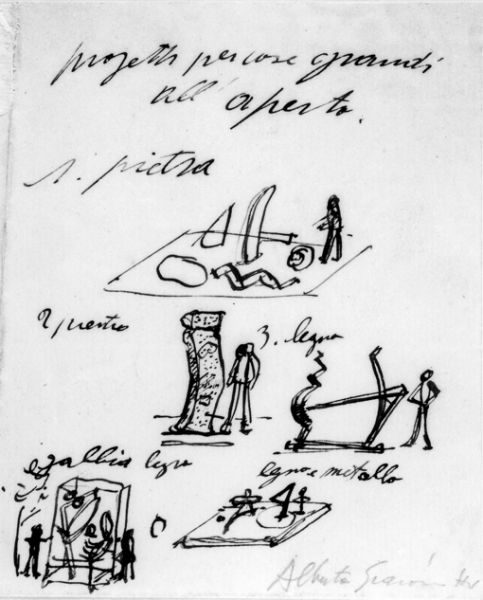 progetti per cose grandi
all'aperto.
1. pietra
2 pietra
3. legno
gabbia legno
legno e metallo
Alberto Giacometti